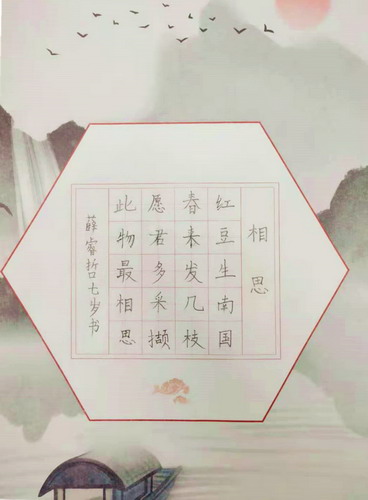 相思
红豆生南国
春来发几枝
愿君多采撷
此物最相思
薛睿哲七岁书